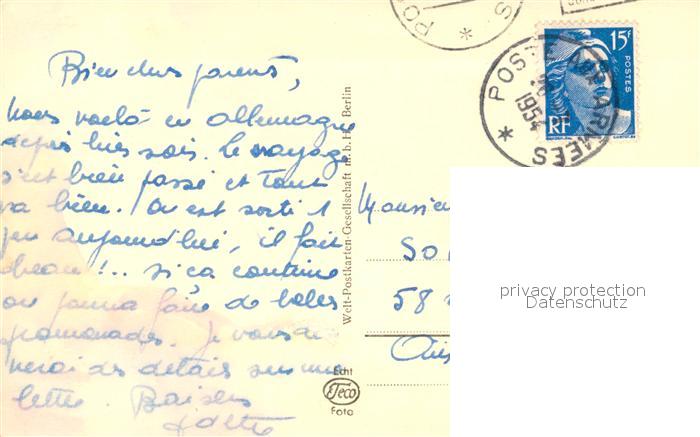 Bien chers parents,
nous voilà en Allemagne
depuis hier soir. Le voyage
s'est bien passé et tout
va bien. On est sorti 1
peu aujourd'hui, il fait
beau!.. si ça continue
on pourra faire de belles
promenades. Je vous
détails sur ma
lettre. Baisers
Odette
Welt-Postkarten-Gesellschaft m.b.H. Berlin
Echt
Teco
Foto
POSTE AUX ARMÉES
1954
*
15F
POSTES
RF
PO
S
*
Monsieur
SO
58
privacy protection
Datenschutz